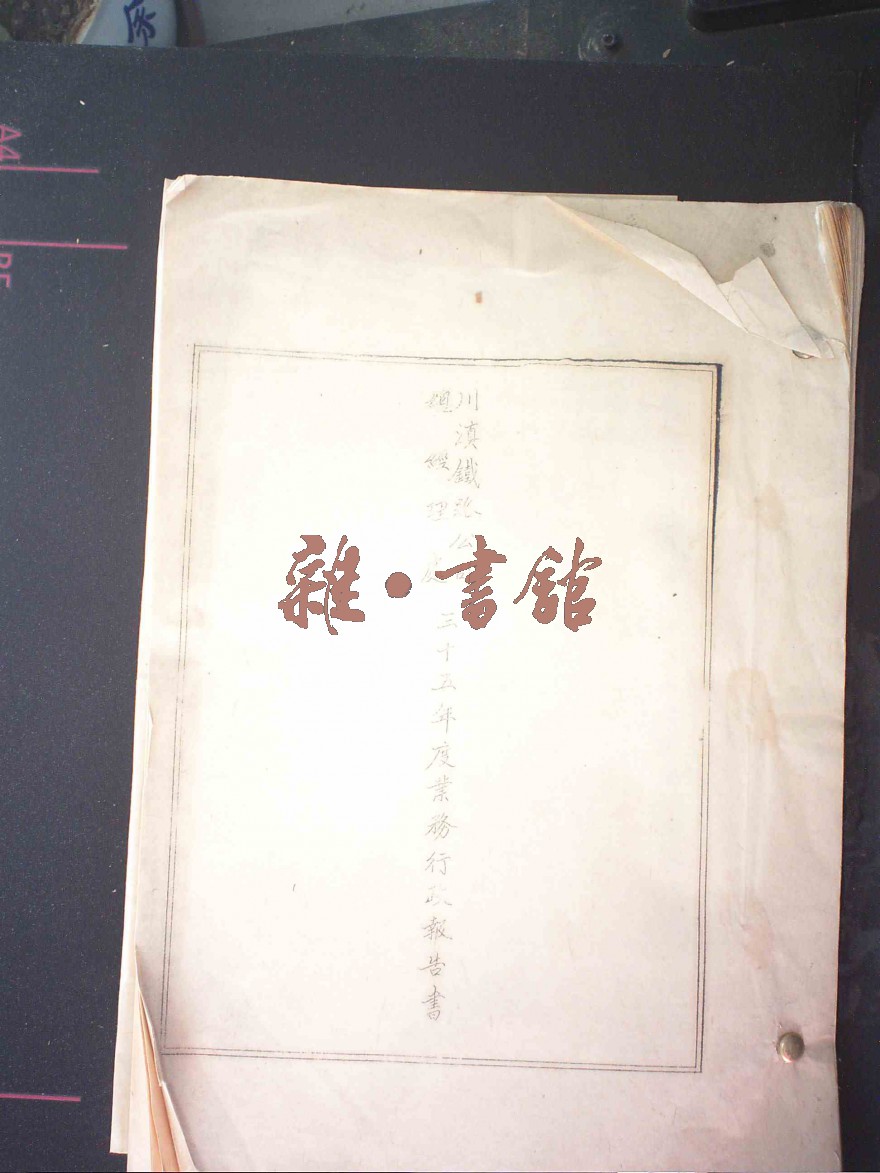 川滇鐵路公司
總經理處
三十五年度業務行政報告書
雜·書館
A4